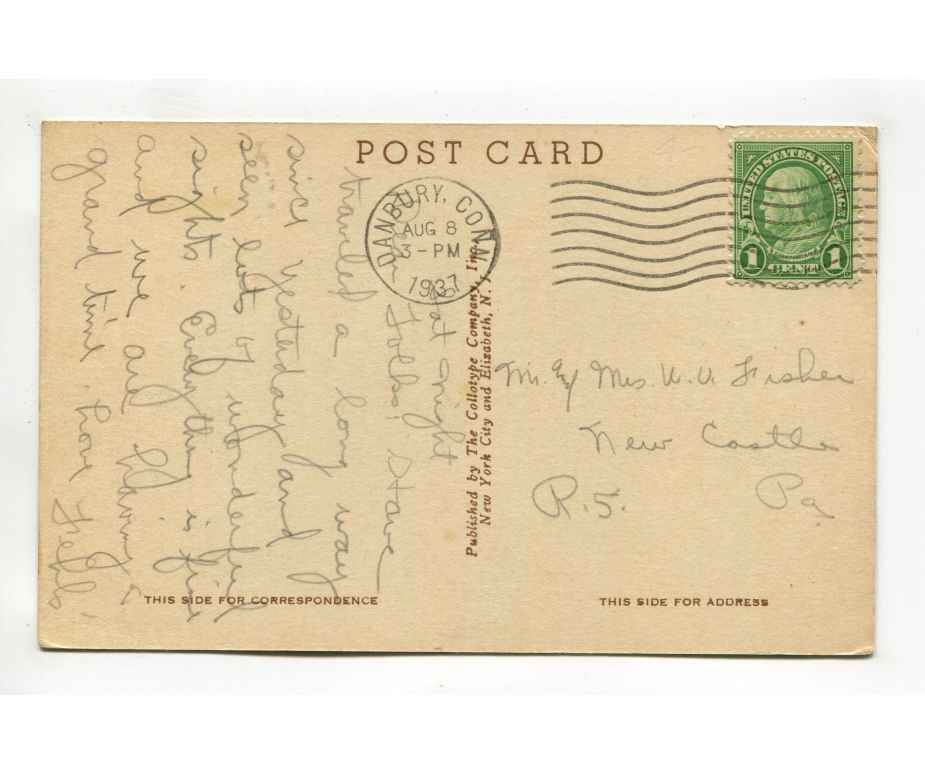 POST CARD
DANBURY, CONN.
AUG 8
3-PM
1937
UNITED STATES POSTAGE
1 CENT 1
Sat night
Dear Folks: Have
traveled a long way
since yesterday and
seen lots of wonderful
sights. Everything is fine
and we are having a
grand time. Love
Published by The Collotype Company, Inc.,
New York City and Elizabeth, N. J.
Mr. & Mrs. W. W. Fisher
New Castle
R. 5. Pa
THIS SIDE FOR CORRESPONDENCE
THIS SIDE FOR ADDRESS